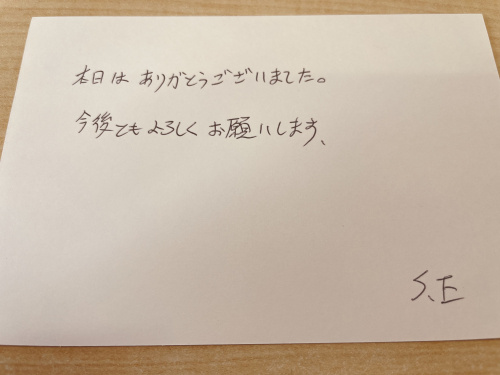 本日は ありがとうございました。
今後ともよろしく お願いします、
S、E